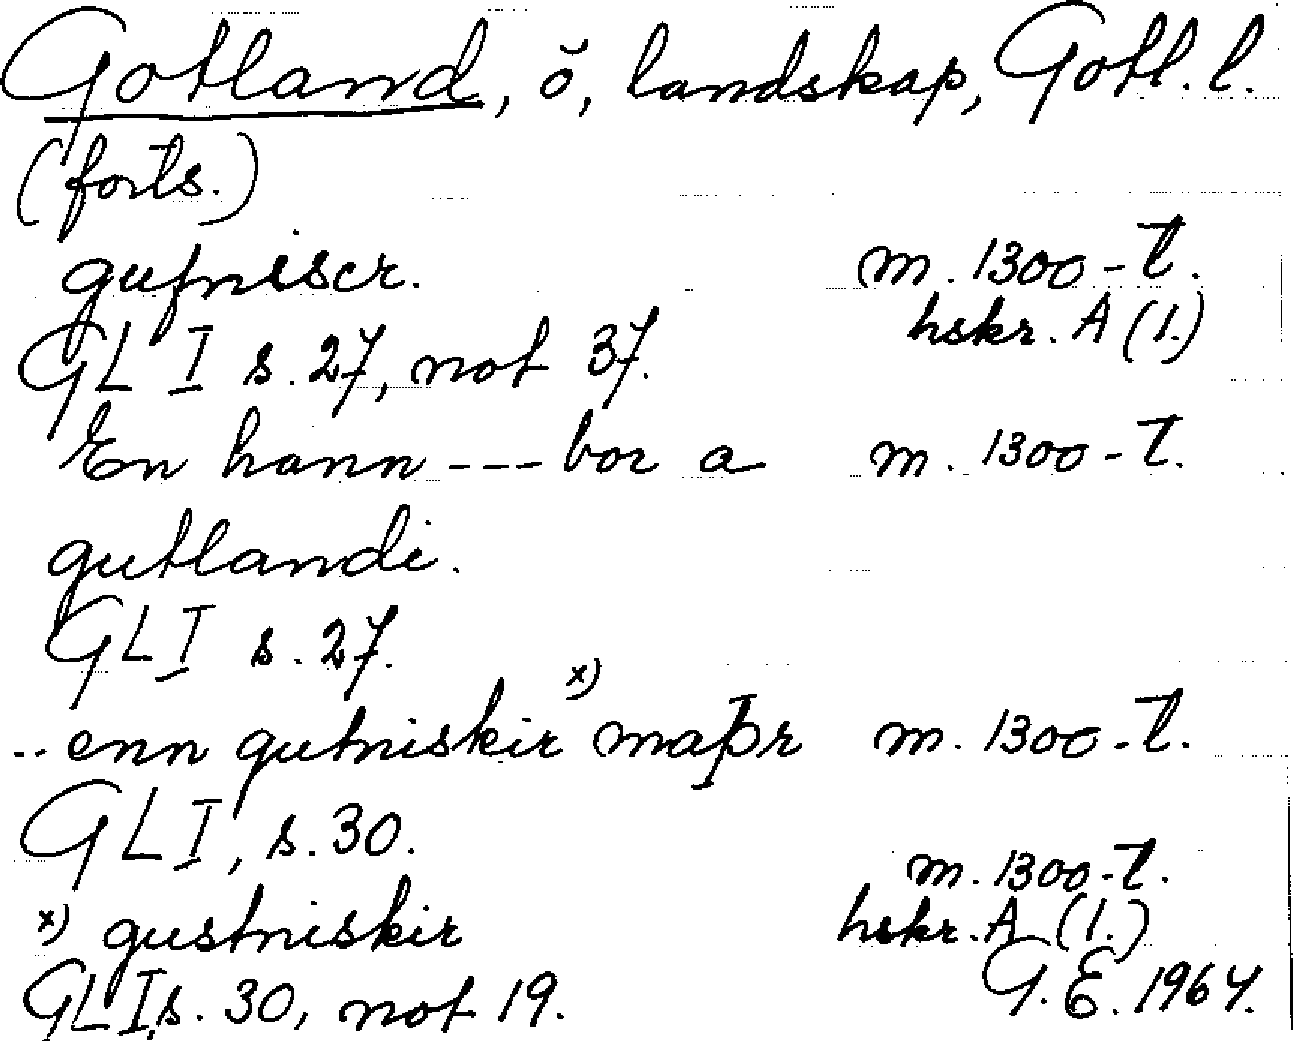 Gotland, ö, landskap, Gotl. l.
(forts.)
gufniscr. m. 1300-t.
hskr. A (1.)
GL I s. 27, not 37.
En hann --- bor a m. 1300-t.
gutlandi.
GL I s. 27.
.. enn gutniskir x) maþr m. 1300-t.
GL I, s. 30.
m. 1300-t.
x) gustniskir hskr. A (1.)
GL I, s. 30, not 19. G. E. 1964.